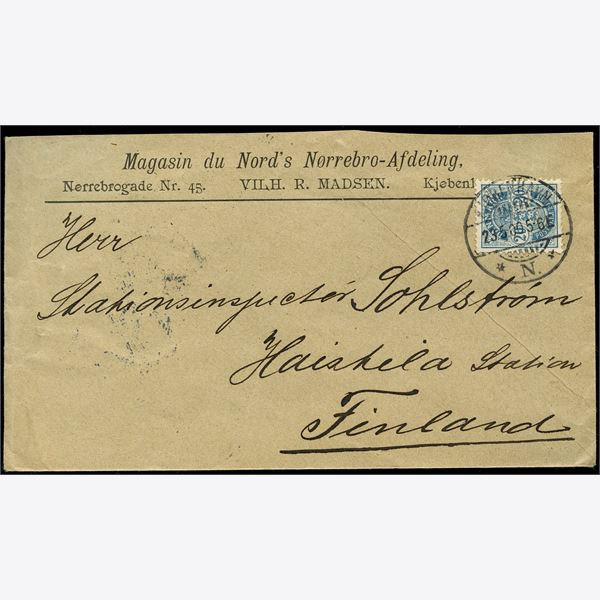 Magasin du Nord's Nørrebro-Afdeling,
Nørrebrogade Nr. 45. VILH. R. MADSEN. Kjøbenh
N.
Herr
Stationsinspector Sohlström
Haistila Station
Finland